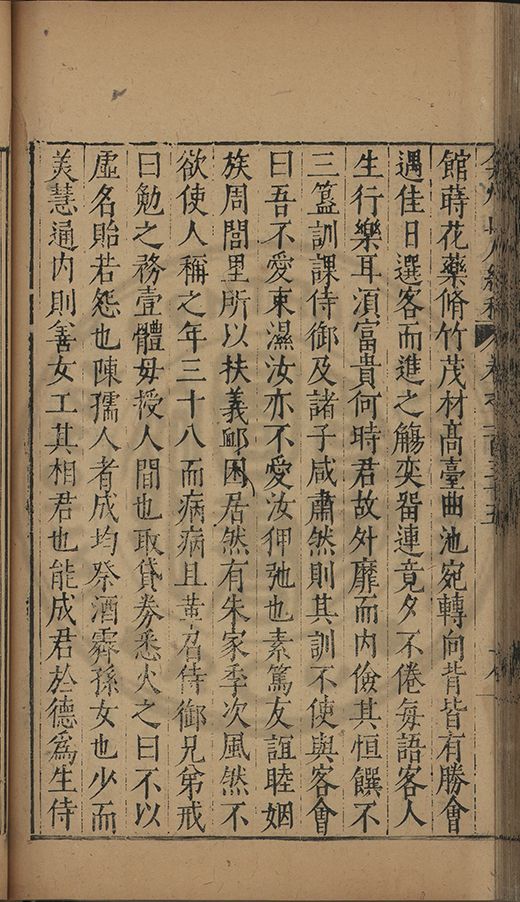 弇州山人續稿 卷之一百三十五
館蒔花藥脩竹茂材髙臺曲池宛轉向背皆有勝會
遇佳日選客而進之觴奕畱連竟夕不倦每語客人
生行樂耳湏富貴何時君故外靡而內儉其恒饌不
三簋訓課侍御及諸子咸肅然則其訓不使與客會
曰吾不愛束濕汝亦不愛汝狎弛也素篤友誼睦姻
族周閭里所以扶義邮困居然有朱家季次風然不
欲使人稱之年三十八而病病且革召侍御兄弟戒
曰勉之務壹體毋授人間也取貸券悉火之曰不以
虛名貽若怨也陳孺人者成均祭酒霽孫女也少而
美慧通內則善女工其相君也能成君於德爲生侍